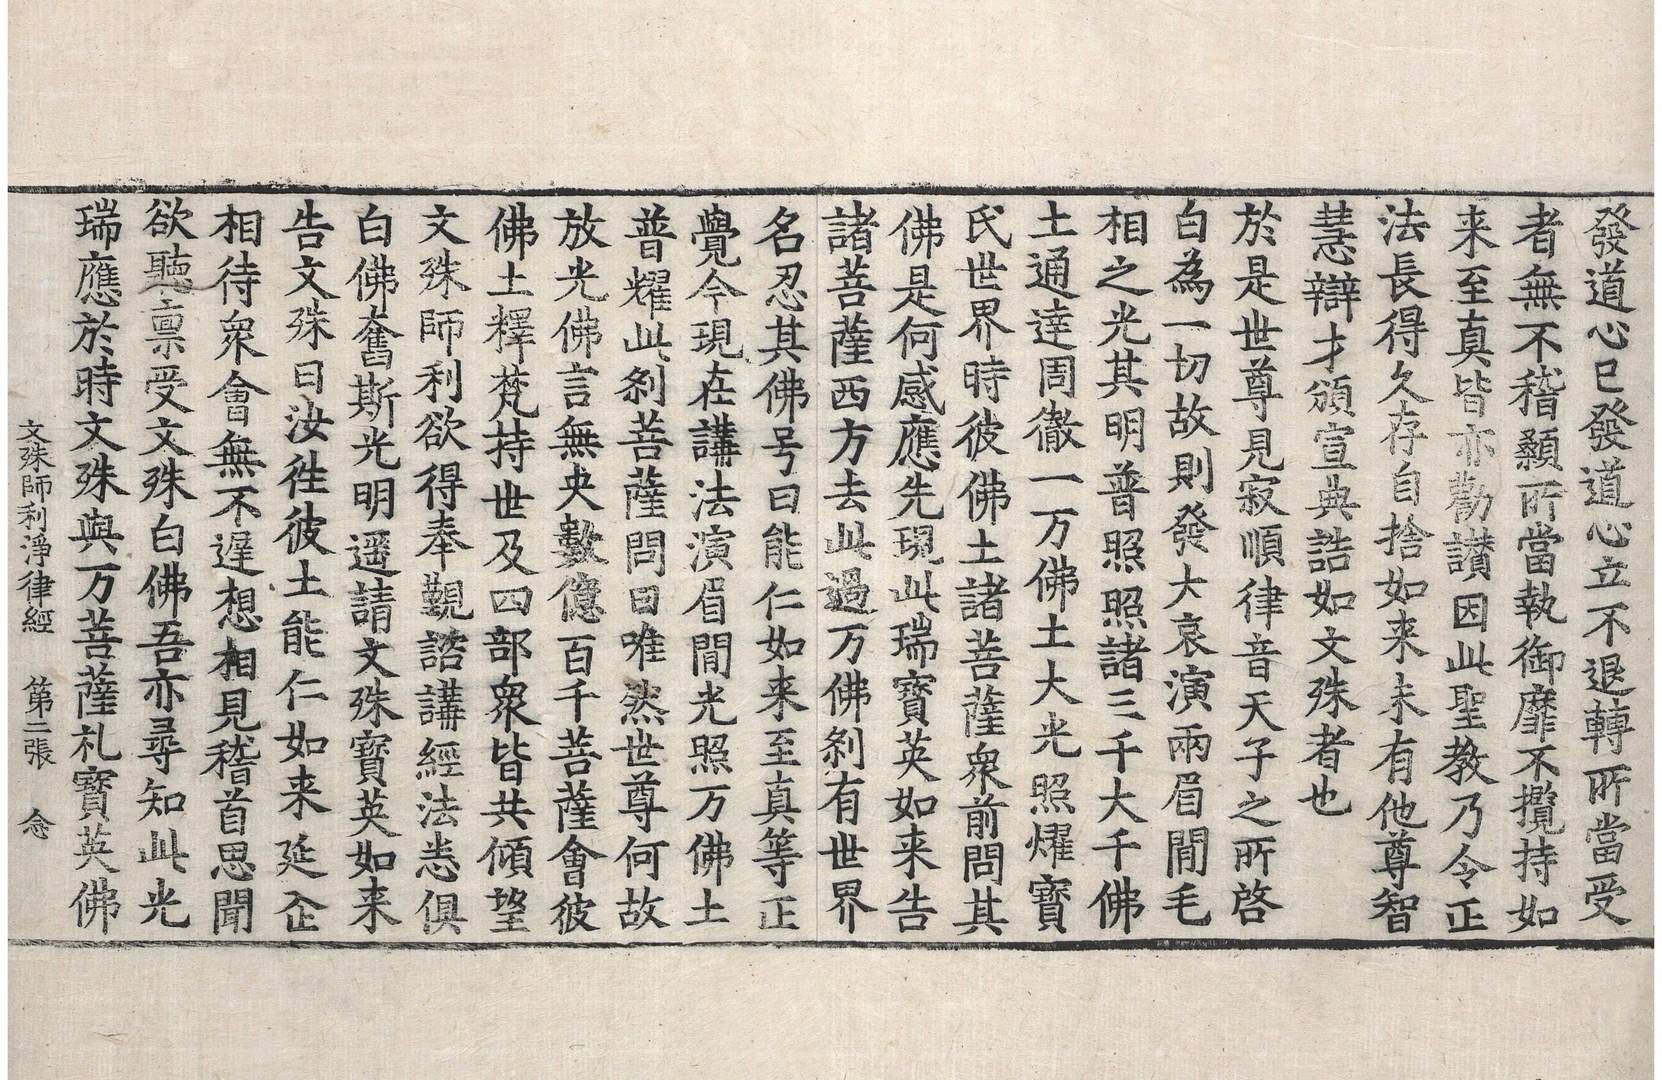 發道心已發道心立不退轉所當受
者無不稽顙所當執御靡不攬持如
来至真皆亦勸讃因此聖教乃令正
法長得久存自捨如来未有他尊智
慧辯才頒宣典誥如文殊者也
於是世尊見寂順律音天子之所啓
白為一切故則發大哀演兩眉間毛
相之光其明普照照諸三千大千佛
土通達周徹一万佛土大光照燿寳
氏世界時彼佛土諸菩薩衆前問其
佛是何感應先現此瑞寳英如来告
諸菩薩西方去此過万佛刹有世界
名忍其佛号曰能仁如来至真等正
覺今現在講法演眉間光照万佛土
普耀此刹菩薩問曰唯然世尊何故
放光佛言無央數億百千菩薩會彼
佛土釋梵持世及四部衆皆共傾望
文殊師利欲得奉覲諮講經法悉俱
白佛奮斯光明遥請文殊寳英如来
告文殊曰汝徃彼土能仁如来延企
相待衆會無不遅想相見稽首思聞
欲聽稟受文殊白佛吾亦尋知此光
瑞應於時文殊與万菩薩礼寳英佛
文殊師利淨律經　第二張　念